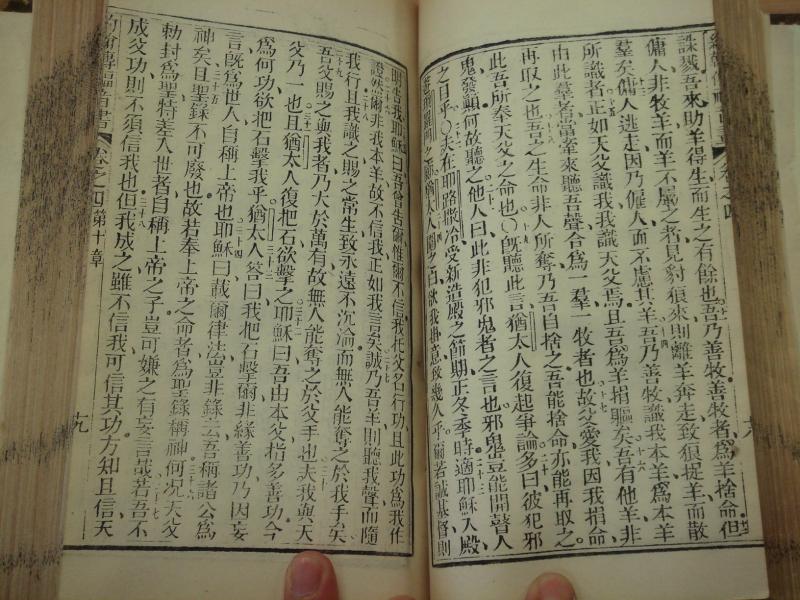 誅戮吾來助羊得生而生之有餘也吾乃善牧善牧者爲羊捨命但
傭人非牧羊而羊不屬之者見豺狼來則離羊奔走致狼捉羊而散
羣矣傭人逃走因乃僱人而不慮其羊吾乃善牧識我本羊爲本羊
所識者正如天父識我我識天父焉且吾爲羊捐軀矣吾有他羊非
由此羣者當牽來聽吾聲合爲一羣一牧者也故父愛我因我捐命
再取之也吾之生命非人所奪乃吾自捨之吾能捨命亦能再取之
此吾所奉天父之命也既聽此言猶太人復起爭論多曰彼犯邪
鬼發顛何故聽之他人曰此非犯邪鬼者之言也邪鬼豈能開瞽人
之目乎夫在耶路撒冷受新造殿之節期正冬季時適耶穌入殿
猶太人圍之曰我掛意致幾久乎爾若誠基督則
明告我耶穌曰吾曾告爾惟爾不信我托父名行功且此功爲我作
證然爾非我本羊故不信我正如我言矣誠乃吾羊則聽我聲而隨
我行且我識之賜之常生致永遠不沉淪而無人能奪之於我手矣
吾父賜之與我者乃大於萬有故無人能奪之於父手也夫我與天
父乃一也且猶太人復把石欲擊之耶穌曰吾由本父指多善功今
爲何功欲把石擊我乎猶太人答曰我把石擊爾非緣善功乃因妄
言旣爲世人自稱上帝也耶穌曰載爾律法豈非錄云吾稱諸公爲
神矣且聖錄不可廢也故若奉上帝之命者爲聖錄稱神何况天父
勅封爲聖特差入世者自稱上帝之子豈可嫌之有妄言哉若吾不
成父功則不須信我也但我成之雖不信我可信其功方知且信天
卷之四第十章
十九